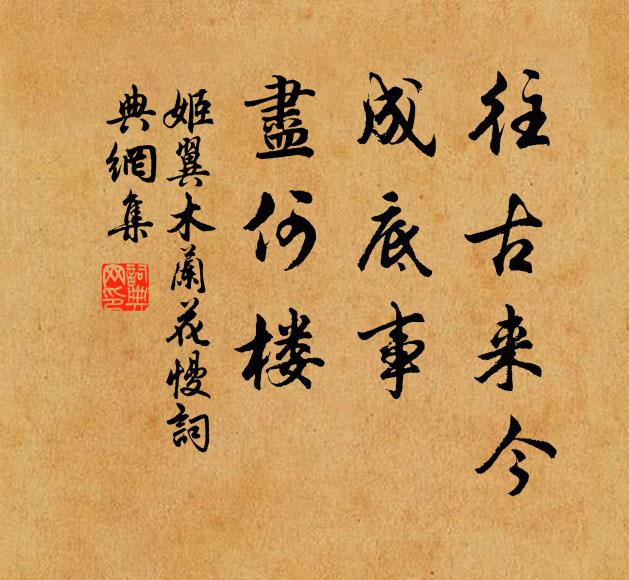 往古来今
成底事
盡何楼
姬翼木蘭花慢詞
典網集
詞典網印